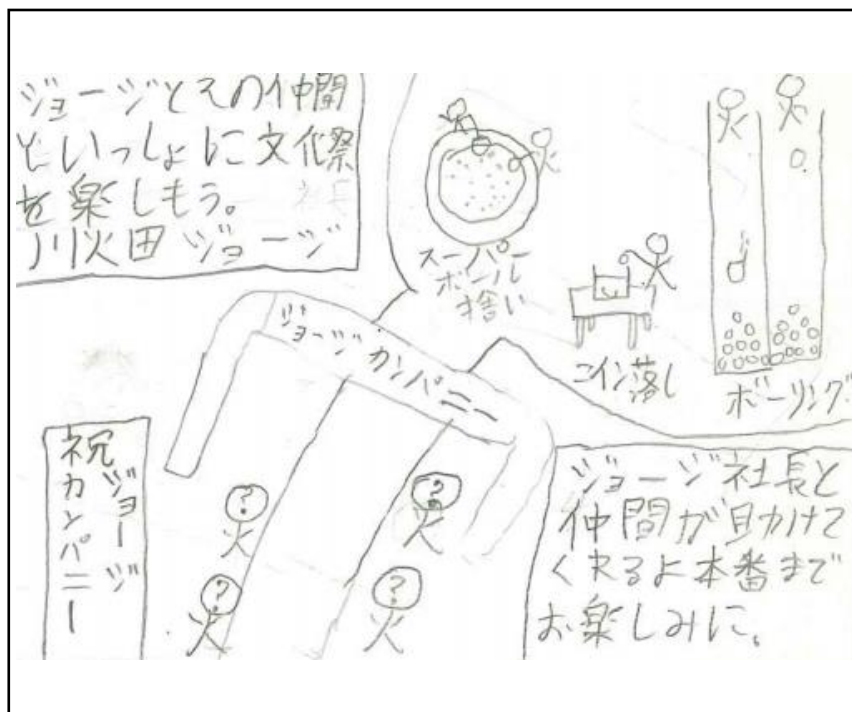 ジョージとその仲間
といっしょに文化祭
を楽しもう。
川畑 ジョージ
スーパー
ボール
捨い
コイン落し
ボーリング
ジョージカンパニー
祝ジョージ
カンパニー
?
?
?
?
ジョージ社長と
仲間が助けて
くれるよ本番まで
お楽しみに。